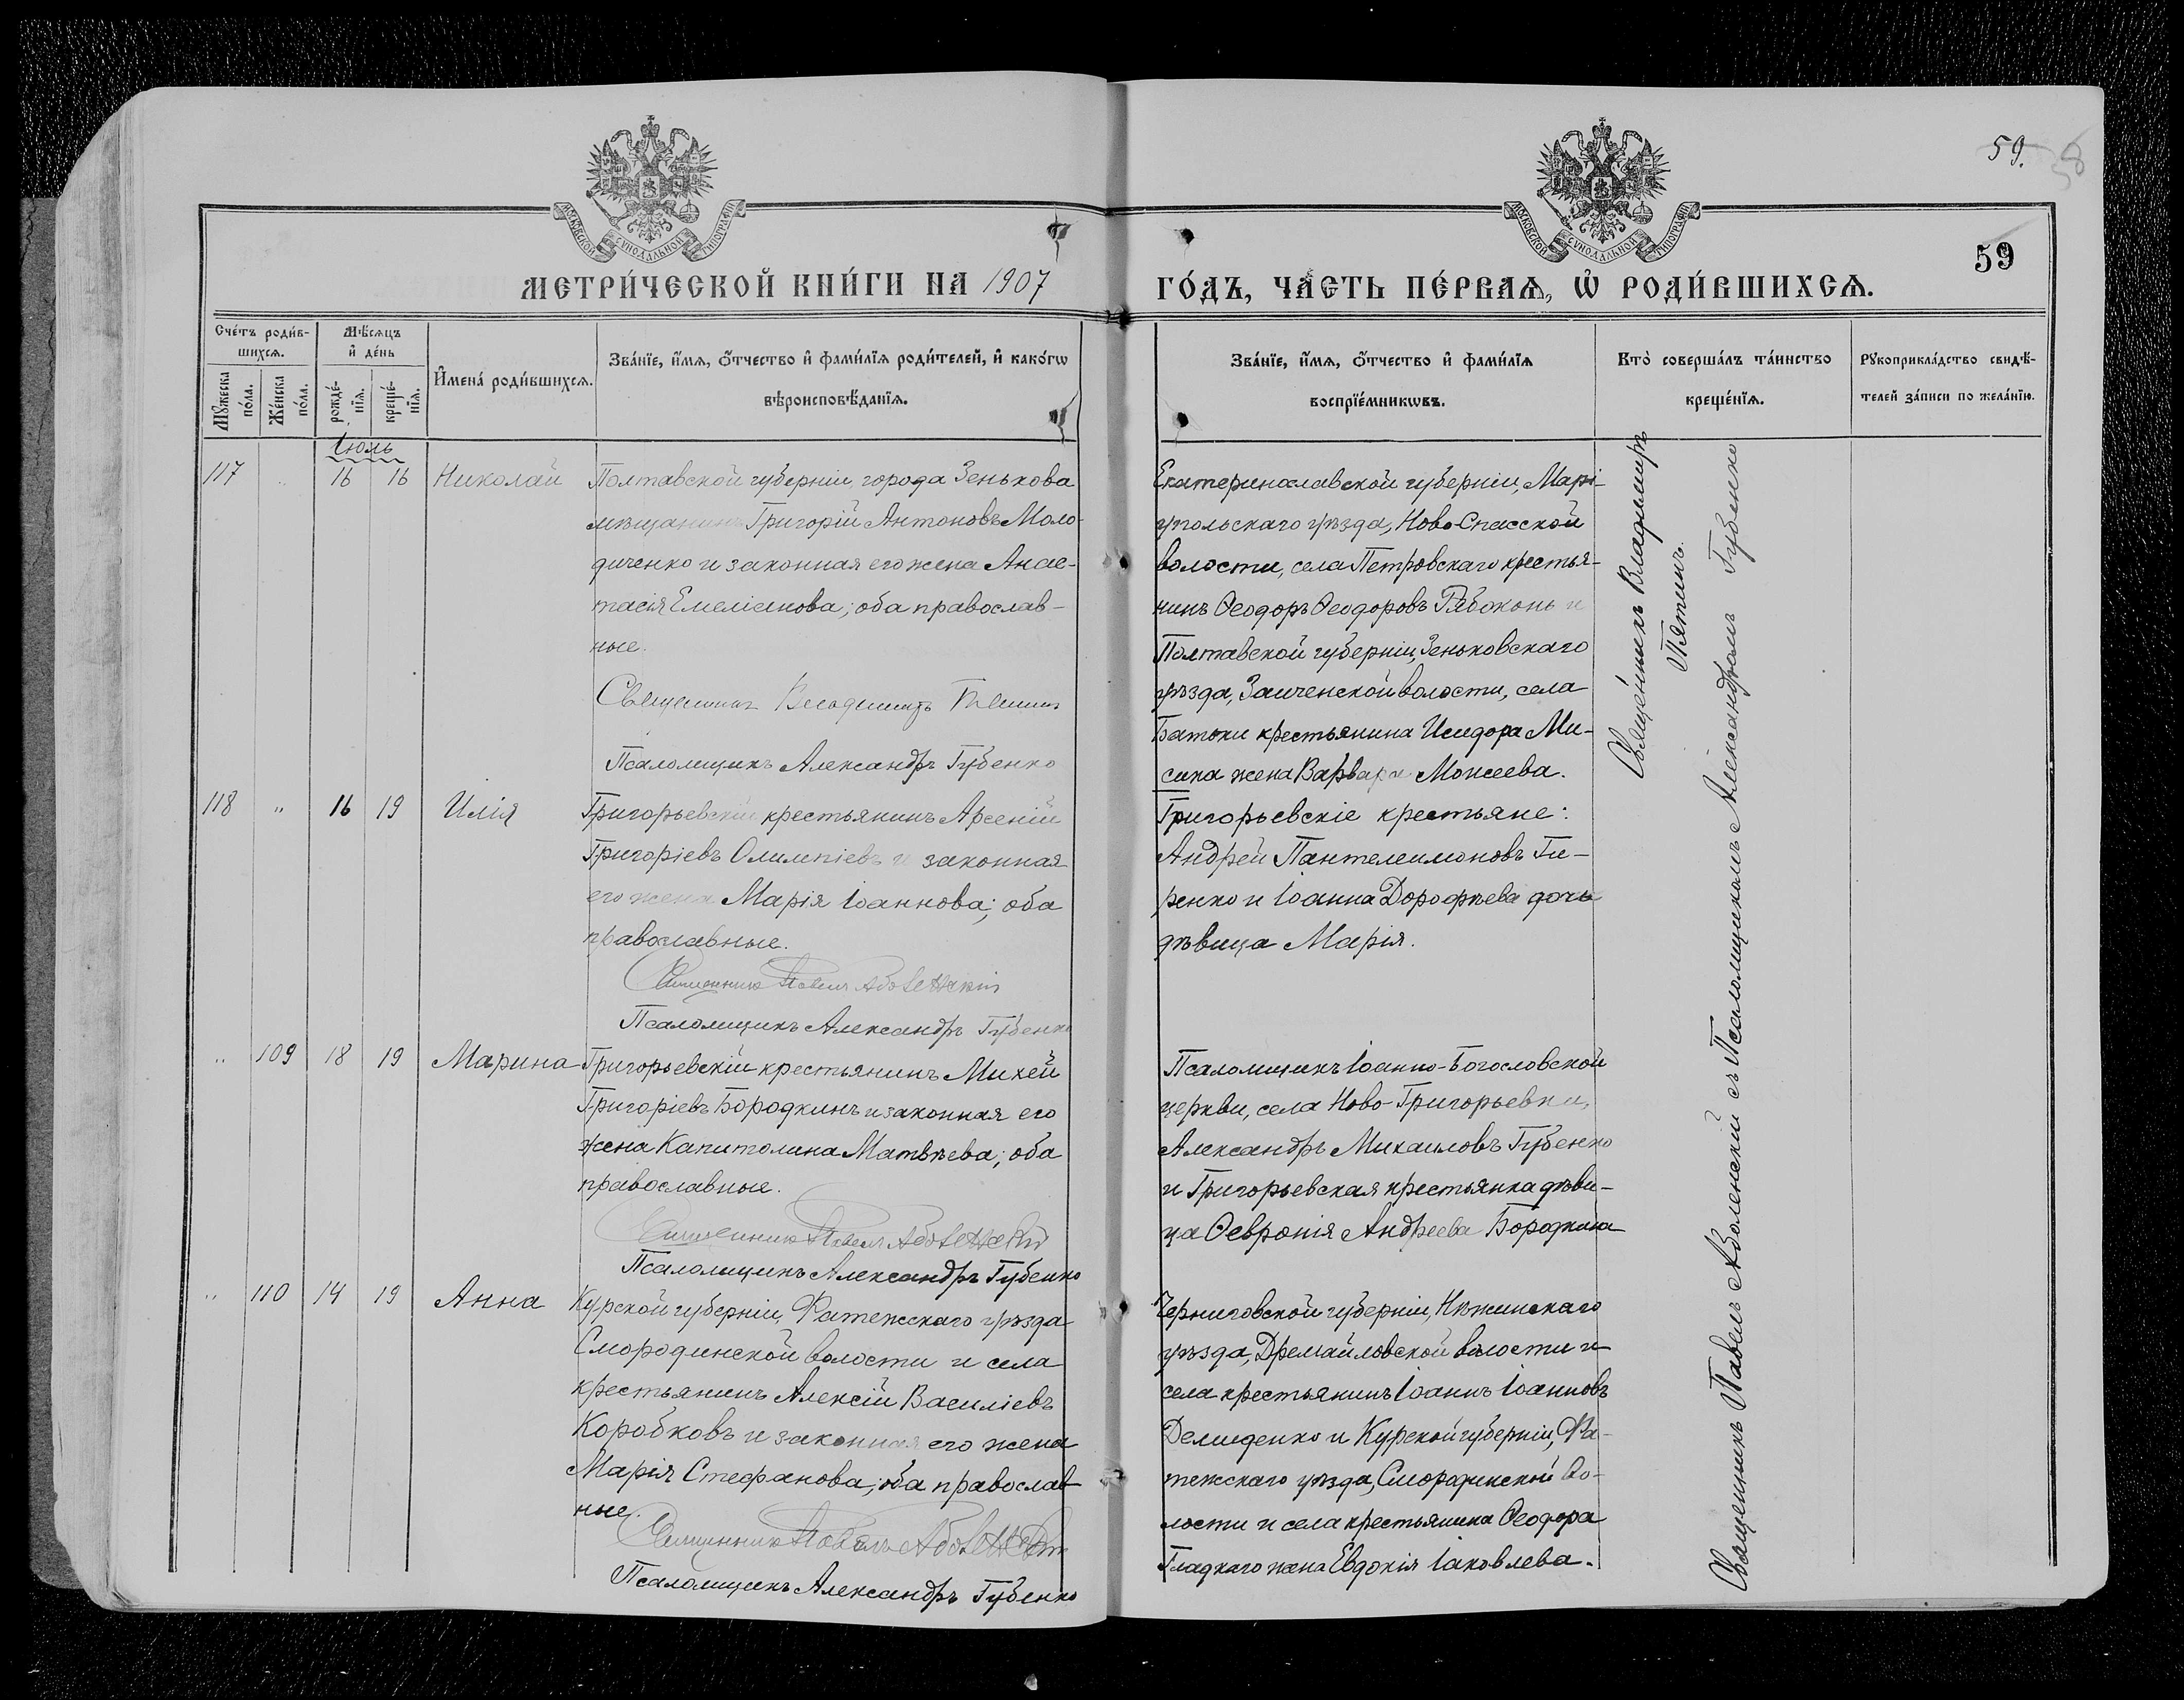 59.
58
МОСКОВСКОЙ СУНОДАЛЬНОЙ ТИПОГРАФІИ
МОСКОВСКОЙ СУНОДАЛЬНОЙ ТИПОГРАФІИ
59
МЕТРИ́ЧЕСКОЙ КНИ́ГИ НА 1907
ГО́ДЪ, ЧА́СТЬ ПЕ́РВАѦ, Ѡ РОДИ́ВШИХСѦ.
Сче́тъ роди́в-
шихсѧ.
Мѣ́сѧцъ
и҆ де́нь
Мꙋ́жеска
по́ла.
Же́нска
по́ла.
рожде́-
нїѧ.
креще́-
нїѧ.
И҆мена́ роди́вшихсѧ.
Зва́нїе, и҆́мѧ, ѻ҆́тчество и҆ фами́лїѧ роди́телей, и҆ како́гѡ
вѣроисповѣ́данїѧ.
Зва́нїе, и҆́мѧ, ѻ҆́тчество и҆ фами́лїѧ
воспрїе́мникѡвъ.
Кто̀ соверша́лъ та́инство
креще́нїѧ.
Рꙋкоприкла́дство свидѣ́-
телей за́писи по жела́нїю.
Іюль
117 " 16 16 Николай
Полтавской губерніи, города Зенькова
мѣщанинъ Григорій Антоновъ Моло-
диченко и законная его жена Анас-
тасія Емеліанова; оба православ-
ные.
Священникъ Владимиръ Пятинъ
Псаломщикъ Александръ Губенко
Екатеринославской губерніи, Марі-
упольскаго уѣзда, Ново-Спасской
волости, села Петровскаго крестья-
нинъ Ѳеодоръ Ѳеодоровъ Рябоконь и
Полтавской губерніи, Зеньковскаго
уѣзда, Заиченской волости, села
Батоки крестьянина Исидора Ми-
сика жена Варвара Моисеева.
Священникъ Владимиръ
Пятинъ.
118 " 16 19 Илія
Григорьевскій крестьянинъ Арсеній
Григоріевъ Олимпіевъ и законная
его жена Марія Іоаннова; оба
православные.
Священникъ Павелъ Аболенскій
Псаломщикъ Александръ Губенко
Григорьевскіе крестьяне:
Андрей Пантелеимоновъ Ги-
ренко и Іоанна Дорофѣева дочь
дѣвица Марія.
" 109 18 19 Марина
Григорьевскій крестьянинъ Михей
Григоріевъ Бородкинъ и законная его
жена Капитолина Матвѣева; оба
православные.
Священникъ Павелъ Аболенскій
Псаломщикъ Александръ Губенко
Псаломщикъ Іоанно-Богословской
церкви, села Ново-Григорьевки,
Александръ Михаиловъ Губенко
и Григорьевская крестьянка дѣви-
ца Ѳевронія Андреева Бородкина
" 110 14 19 Анна
Курской губерніи, Фатежскаго уѣзда
Смородинской волости и села
крестьянинъ Алексій Василіевъ
Коробковъ и законная его жена
Марія Стефанова; оба православ
ные.
Священникъ Павелъ Аболенскій
Псаломщикъ Александръ Губенко
Черниговской губерніи, Нѣжинскаго
уѣзда, Дремайловской волости и
села крестьянинъ Іоаннъ Іоанновъ
Демиденко и Курской губерніи, Фа-
тежскаго уѣзда, Смородинской во-
лости и села крестьянина Ѳеодора
Гладкаго жена Евдокія Іаковлева.
Священникъ Павелъ Аболенскій съ Псаломщикомъ Александромъ Губенко